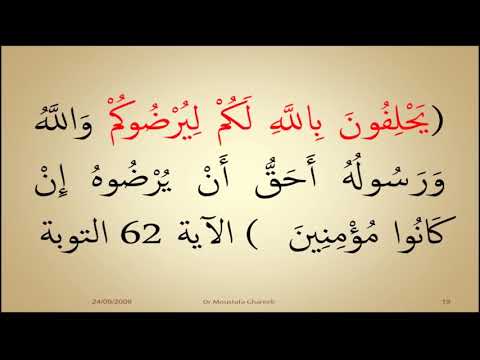 (يَحْلِفُونَ بِاللَّهِ لَكُمْ لِيُرْضُوكُمْ وَاللَّهُ
وَرَسُولُهُ أَحَقُّ أَنْ يُرْضُوهُ إِنْ
كَانُوا مُؤْمِنِينَ ) الآية 62 التوبة
24/09/2009 Dr Moustafa Ghareeb 19